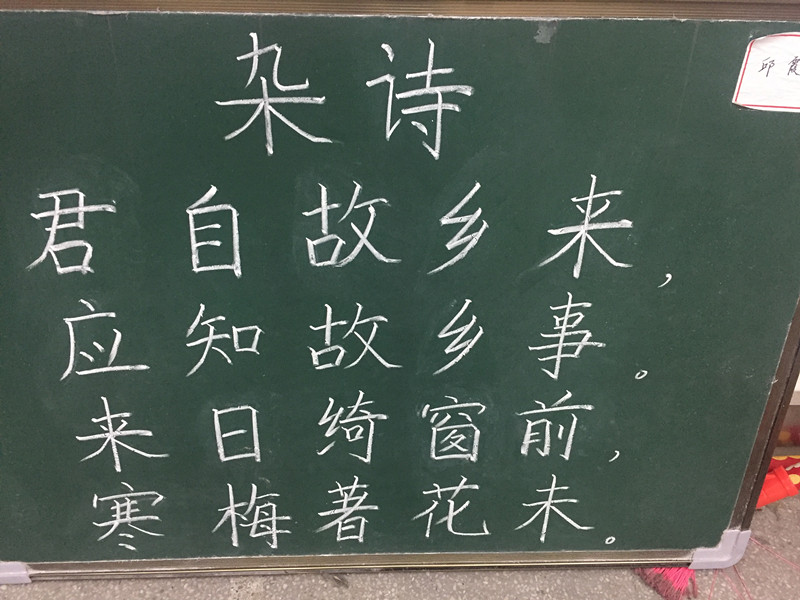 杂诗
君自故乡来,
应知故乡事。
来日绮窗前,
寒梅著花未。
邱霞